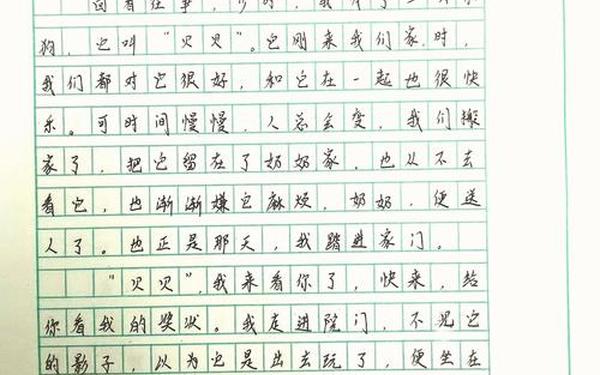 回看往事，少时，我
狗，它叫“贝贝”。它刚来我们家时，
我们都对它很好，和它在一起也很快
乐。可时间慢慢，人总会变，我们搬
家了，把它留在了奶奶家，也从不去
看它，也渐渐嫌它麻烦，奶奶，便送
人了。也正是那天，我踏进家门。
“贝贝”，我来看你了，快来，给
你看我的奖状。我走进院门，不见它
的影子，以为它是出去玩了，便坐在